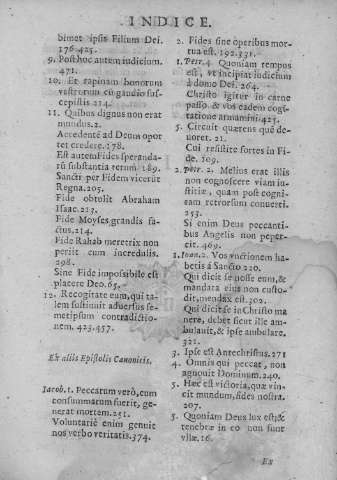 INDICE.
bimet ipsis Filium Dei.
176.425.
9. Post hoc autem iudicium.
471.
10. Et rapinam bonorum
vestrorum cū gaudio sus-
cepistis 214.
11. Quibus dignus non erat
mundus.2.
Accedentē ad Deum opor
tet credere.178.
Est autem Fides sperandarū
substantia rerum 189.
Sancti per Fidem vicerūt
Regna.205.
Fide obtulit Abraham
Isaac.213.
Fide Moyses grandis fa-
ctus,214.
Fide Rahab meretrix non
periit cum incredulis.
298.
Sine Fide impossibile est
placere Deo.65.
12. Recogitate eum, qui ta-
lem sustinuit aduersus se-
metipsum contradictio-
nem.423.457.
Ex aliis Epistolis Canonicis.
Jacob.1. Peccatum verò, cum
consummatum fuerit, ge-
nerat mortem.251.
Voluntariè enim genuit
nos verbo veritatis.374.
2. Fides sine operibus mor-
tua est.192.331.
1.Petr.4. Quoniam tempus
est, vt incipiat iudicium
à domo Dei.264.
Christo igitur in carne
passo & vos eadem cogi-
tatione armamini.425.
5. Circuit quærens quē de-
uoret.21.
Cui resistite fortes in Fi-
de.109.
2.petr.2. Melius erat illis
non cognoscere viam iu-
stitiæ, quam post cogni-
eam retrorsum conuerti.
253.
Si enim Deus peccanti-
bus Angelis non peper-
cit.469.
1.Ioan.2. Vos vnctionem ha-
betis à Sancto 220.
Qui dicit se nosse eum, &
mandata eius non custo-
dit, mendax est.302.
Qui dicit se in Christo ma
nere, debet sicut ille am-
bulauit, & ipse ambulare.
321.
3. Ipse est Antechristus.271
4. Omnis qui peccat, non
agnouit Dominum.240.
5. Hæc est victoria, quæ vin-
cit mundum, fides nostra.
207.
5. Quoniam Deus lux est, &
tenebræ in eo non sunt
vllæ.16.
Ex